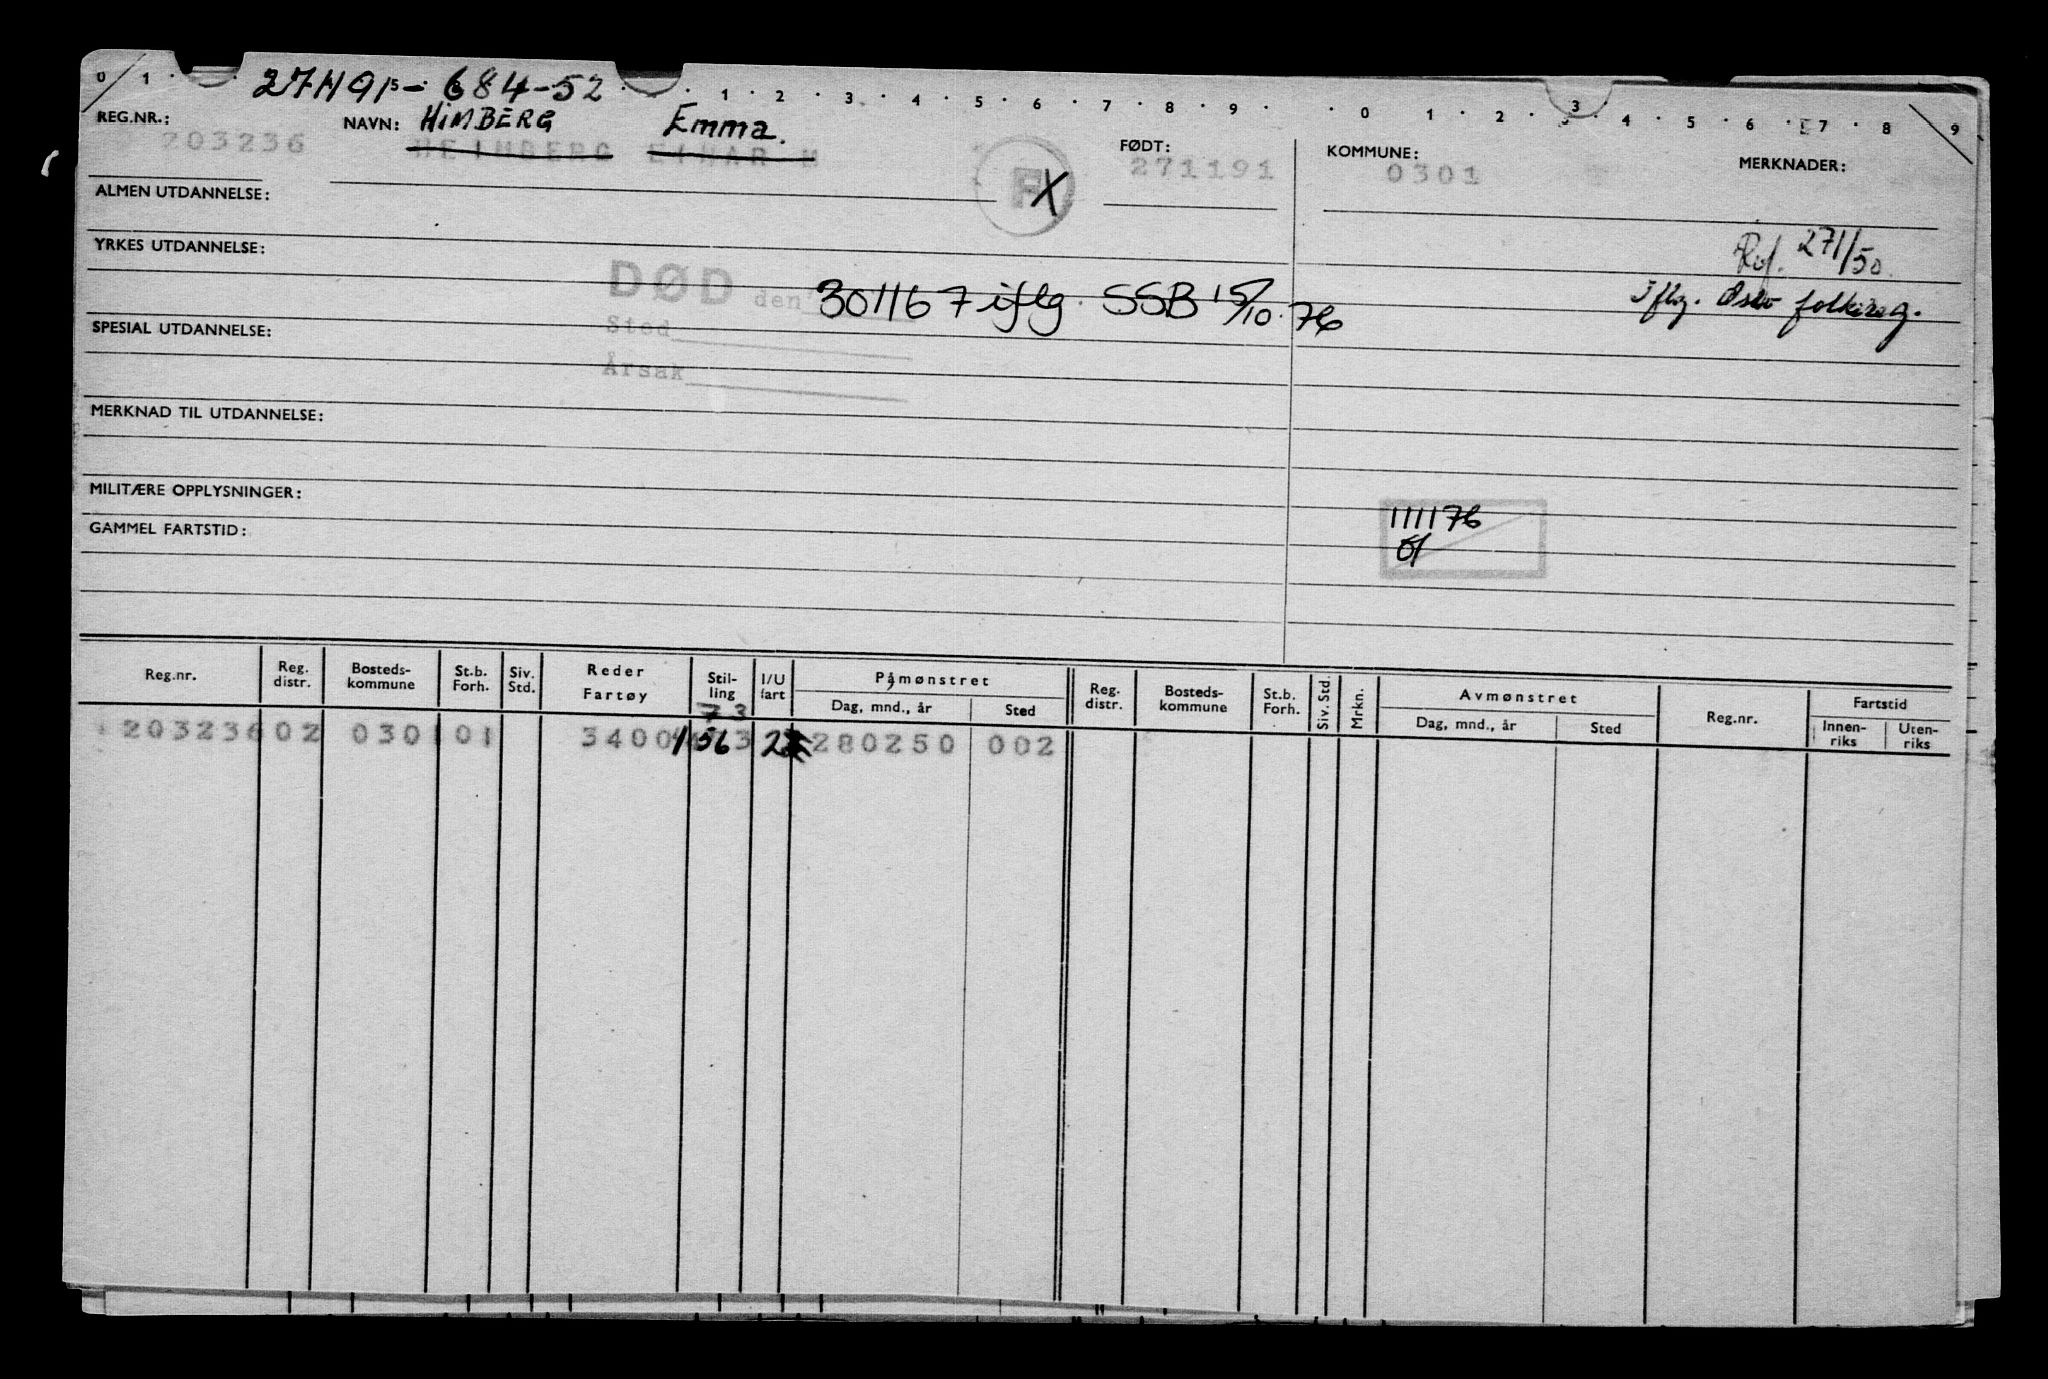 0 1 1 2 3 4 5 6 7 8 9 0 1 2 3 4 5 6 7 8 9
271191 - 684-52
REG.NR.: NAVN: HIMBERG Emma. FØDT: KOMMUNE: MERKNADER:
203236 HEIMBERG EINAR M 271191 0301
ALMEN UTDANNELSE:
YRKES UTDANNELSE: 271/50
DØD den 301167 iflg. SSB 15/10.76 Iflg. Oslo folkereg.
Sted
SPESIAL UTDANNELSE:
Årsak
MERKNAD TIL UTDANNELSE:
MILITÆRE OPPLYSNINGER:
111176
GAMMEL FARTSTID:
Reg.nr. Reg. distr. Bosteds- kommune St.b. Forh. Siv. Std. Reder Fartøy Stil- ling I/U fart Påmønstret Dag, mnd., år Sted Reg. distr. Bosteds- kommune St.b. Forh. Siv. Std. Mrkn. Avmønstret Dag, mnd., år Sted Reg.nr. Fartstid Innen- riks Uten- riks
73
203236 02 0301 01 3400 156 2 280250 002